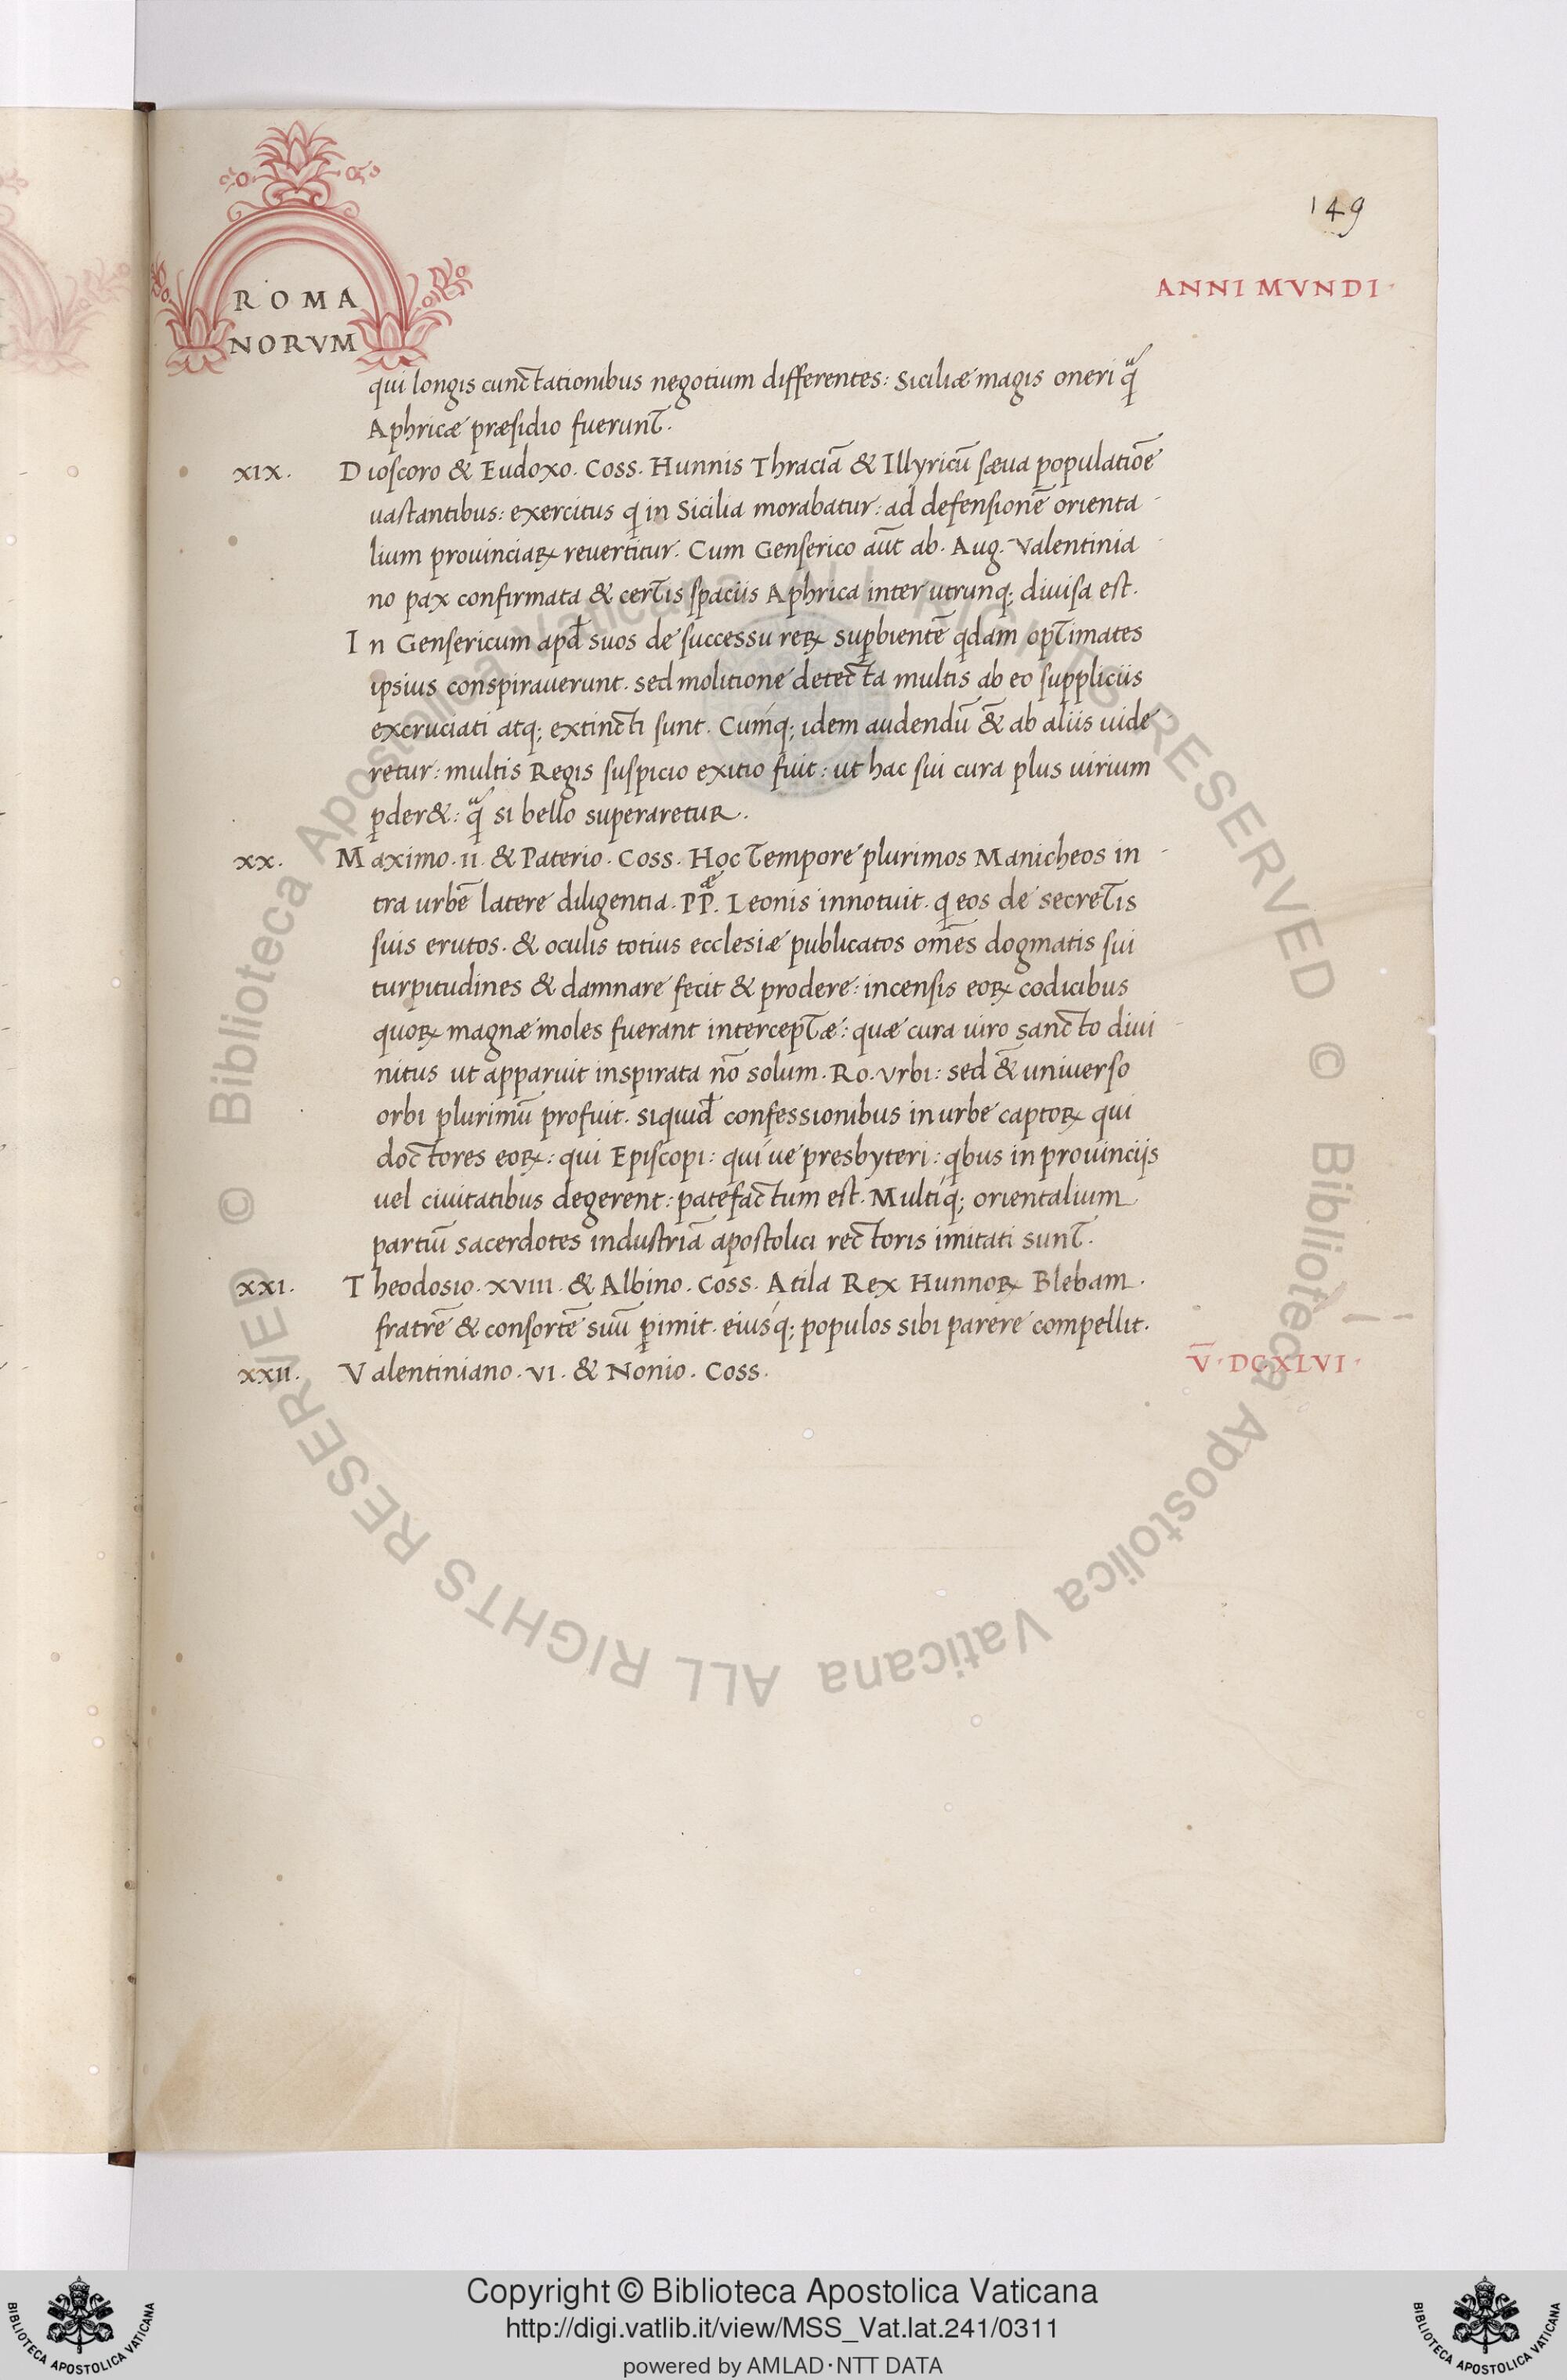 149
ANNI MVNDI·
ROMA
NORVM
qui longis cunctationibus negotium differentes: Siciliæ magis oneri qͣ̃
Aphricæ præſidio fuerunt.
XIX. Dioſcoro & Eudoxo. Coss. Hunnis Thraciã & Illyricũ ſæua populatiõe
uaſtantibus: exercitus q̃ in Sicilia morabatur: ad defenſionẽ orienta-
lium prouinciaꝝ reuertitur. Cum Genſerico aũt ab. Aug. Valentinia-
no pax confirmata & certis ſpaciis Aphrica inter utrunq; diuiſa eſt.
In Genſericum apd̃ suos de ſucceſſu reꝝ suꝑbientẽ q̃dam optimates
ipsius conspirauerunt. sed molitione detecta multis ab eo ſuppliciis
excruciati atq; extincti ſunt. Cumq́; idem audendũ &̃ ab aliis uide-
retur: multis Regis ſuſpicio exitio fuit: ut hac ſui cura plus uirium
ꝑder&: qͣ̃ si bello superaretur.
XX. Maximo. II. & Paterio. Coss. Hoc tempore plurimos Manicheos in-
tra urbẽ latere diligentia. PP̃ᵆ. Leonis innotuit. q̃ eos de secretis
ſuis erutos. & oculis totius ecclesiæ publicatos om̃es dogmatis ſui
turpitudines & damnare fecit & prodere: incenſis eoꝝ codicibus
quoꝝ magnæ moles fuerant interceptæ: quæ cura uiro sancto diui-
nitus ut apparuit inspirata nõ solum. Ro. Vrbi: sed &̃ uniuerſo
orbi plurimũ profuit. siquid̃ confeſſionibus in urbe captoꝝ qui
doctores eoꝝ: qui Epiſcopi: qui ue presbyteri: q̃bus in prouinciis
uel ciuitatibus degerent: patefactum eſt. Multiq́; orientalium
partiũ sacerdotes induſtriã apoſtolici rectoris imitati sunt.
XXI. Theodosio. XVIII. & Albino. Coss. Atila Rex Hunnoꝝ Blebam.
fratrẽ & conſortẽ suũ ꝑimit. eiusq́; populos sibi parere compellit.
XXII. Valentiniano. VI. & Nonio. Coss. V̅·DCXLVI·
© Biblioteca Apostolica Vaticana ALL RIGHTS RESERVED © Biblioteca Apostolica Vaticana ALL RIGHTS RESERVED
Copyright © Biblioteca Apostolica Vaticana
http://digi.vatlib.it/view/MSS_Vat.lat.241/0311
powered by AMLAD·NTT DATA
BIBLIOTECA APOSTOLICA VATICANA
BIBLIOTECA APOSTOLICA VATICANA